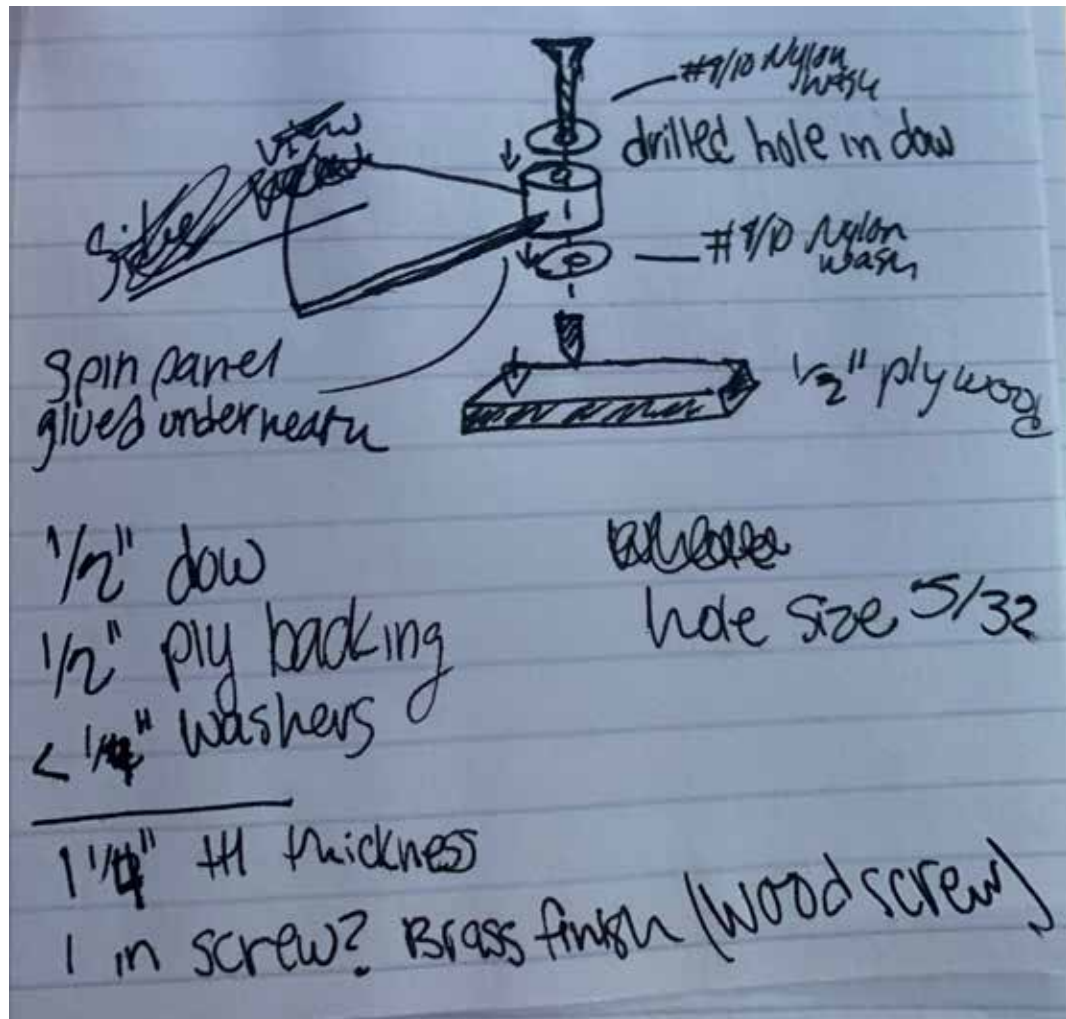 #9/10 Nylon
wash
drilled hole in dow
#9/10 Nylon
wash
spin panel
glued underneath
1/2" plywood
1/2" dow
1/2" ply backing
< 1/4" washers
hole size 5/32
1 1/4" ttl thickness
1 in screw? Brass finish (wood screw)